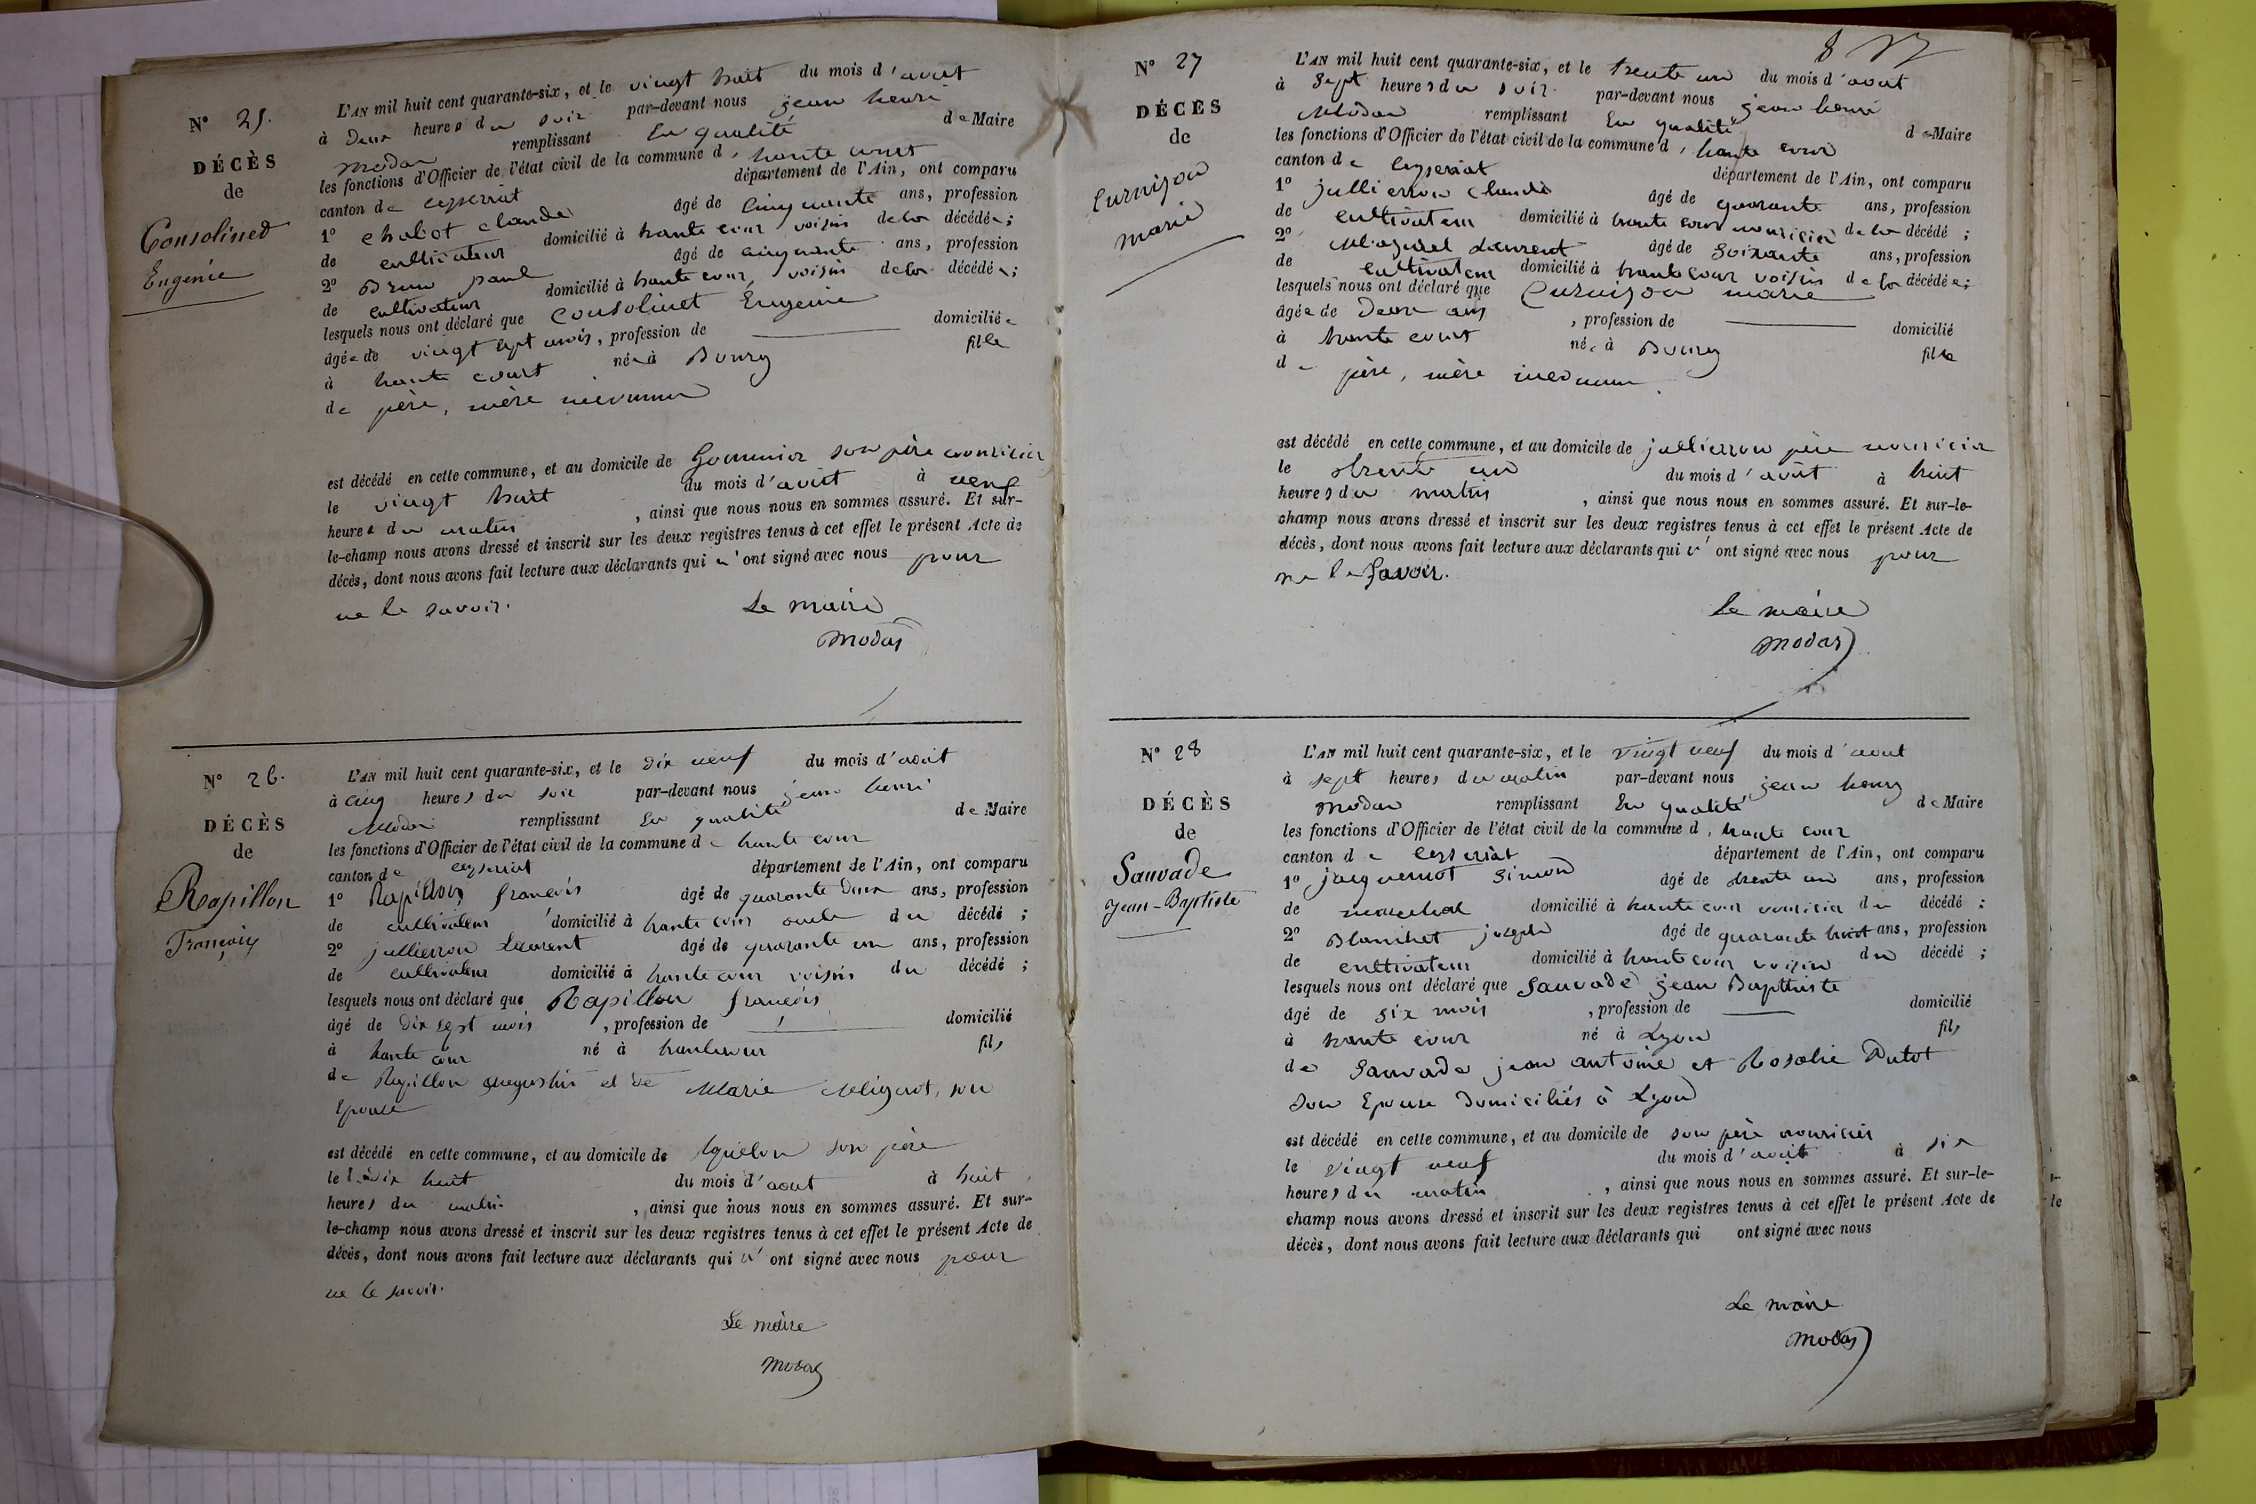 N° 25.
DÉCÈS
de
Consolined
Eugénie
L'AN mil huit cent quarante-six, et le vingt huit du mois d'aout
à deux heures du soir par-devant nous jean henri
modas remplissant En qualité de Maire
les fonctions d'Officier de l'état civil de la commune d, haute court
canton de ceyseriat département de l'Ain, ont comparu
1° chabot claude âgé de cinquante ans, profession
de cultivateur domicilié à haute cour voisin de la décédée;
2° Brun paul âgé de cinquante ans, profession
de cultivateur domicilié à haute cour, voisin de la décédée;
lesquels nous ont déclaré que Consolinet Eugenie
âgée de vingt sept mois, profession de domiciliée
à haute court née à Bourg fille
de père, mère inconnus
est décédé en cette commune, et au domicile de son père nouricier
le vingt huit du mois d'aout à neuf
heures du matin, ainsi que nous nous en sommes assuré. Et sur-
le-champ nous avons dressé et inscrit sur les deux registres tenus à cet effet le présent Acte de
décès, dont nous avons fait lecture aux déclarants qui n'ont signé avec nous pour
ne le savoir.
Le maire
Modas
N° 26.
DÉCÈS
de
Rapillon
François
L'AN mil huit cent quarante-six, et le dix neuf du mois d'aout
à cinq heures du soir par-devant nous jean henri
Modas remplissant En qualité de Maire
les fonctions d'Officier de l'état civil de la commune de haute cour
canton de ceyseriat département de l'Ain, ont comparu
1° Rapillon françois âgé de quarante deux ans, profession
de cultivateur domicilié à haute cour oncle du décédé;
2° jullierron Laurent âgé de quarante un ans, profession
de cultivateur domicilié à haute cour voisin du décédé;
lesquels nous ont déclaré que Rapillon françois
âgé de dix sept mois, profession de domicilié
à haute cour né à hautecour fils
de Rapillon augustin et de Marie Mignot, son
Epouse
est décédé en cette commune, et au domicile de son père
le dix huit du mois d'aout à huit
heures du matin, ainsi que nous nous en sommes assuré. Et sur-
le-champ nous avons dressé et inscrit sur les deux registres tenus à cet effet le présent Acte de
décès, dont nous avons fait lecture aux déclarants qui n'ont signé avec nous pour
ne le savoir.
Le maire
Modas
8
N° 27
DÉCÈS
de
Curnizon
marie
L'AN mil huit cent quarante-six, et le trente un du mois d'aout
à sept heures du soir par-devant nous jean henri
Modas remplissant En qualité de Maire
les fonctions d'Officier de l'état civil de la commune d, haute cour
canton de ceyseriat département de l'Ain, ont comparu
1° jullierron claude âgé de quarante ans, profession
de cultivateur domicilié à haute cour nouricier de la décédé;
2° Laurent âgé de soixante ans, profession
de cultivateur domicilié à haute cour voisin de la décédée;
lesquels nous ont déclaré que Curnizon marie
âgée de deux ans, profession de domicilié
à haute court née à Bourg fille
de père, mère inconnu.
est décédé en cette commune, et au domicile de jullierron père nouricier
le trente un du mois d'août à huit
heures du matin, ainsi que nous nous en sommes assuré. Et sur-le-
champ nous avons dressé et inscrit sur les deux registres tenus à cet effet le présent Acte de
décès, dont nous avons fait lecture aux déclarants qui n'ont signé avec nous pour
ne le savoir.
le maire
Modas
N° 28
DÉCÈS
de
Sauvade
Jean-Baptiste
L'AN mil huit cent quarante-six, et le vingt neuf du mois d'aout
à sept heures du matin par-devant nous jean henry
Modas remplissant En qualité de Maire
les fonctions d'Officier de l'état civil de la commune d, haute cour
canton de ceyseriat département de l'Ain, ont comparu
1° jacquemot Simon âgé de trente un ans, profession
de marechal domicilié à haute cour nouricier du décédé;
2° Blanchet joseph âgé de quarante huit ans, profession
de cultivateur domicilié à haute cour voisin du décédé;
lesquels nous ont déclaré que Sauvade jean Baptiste
âgé de six mois, profession de domicilié
à haute cour né à Lyon fils
de Sauvade jean antoine et Rosalie Dutot
son Epouse domiciliés à Lyon
est décédé en cette commune, et au domicile de son père nouricier
le vingt neuf du mois d'août à six
heures du matin, ainsi que nous nous en sommes assuré. Et sur-le-
champ nous avons dressé et inscrit sur les deux registres tenus à cet effet le présent Acte de
décès, dont nous avons fait lecture aux déclarants qui ont signé avec nous
Le maire
Modas